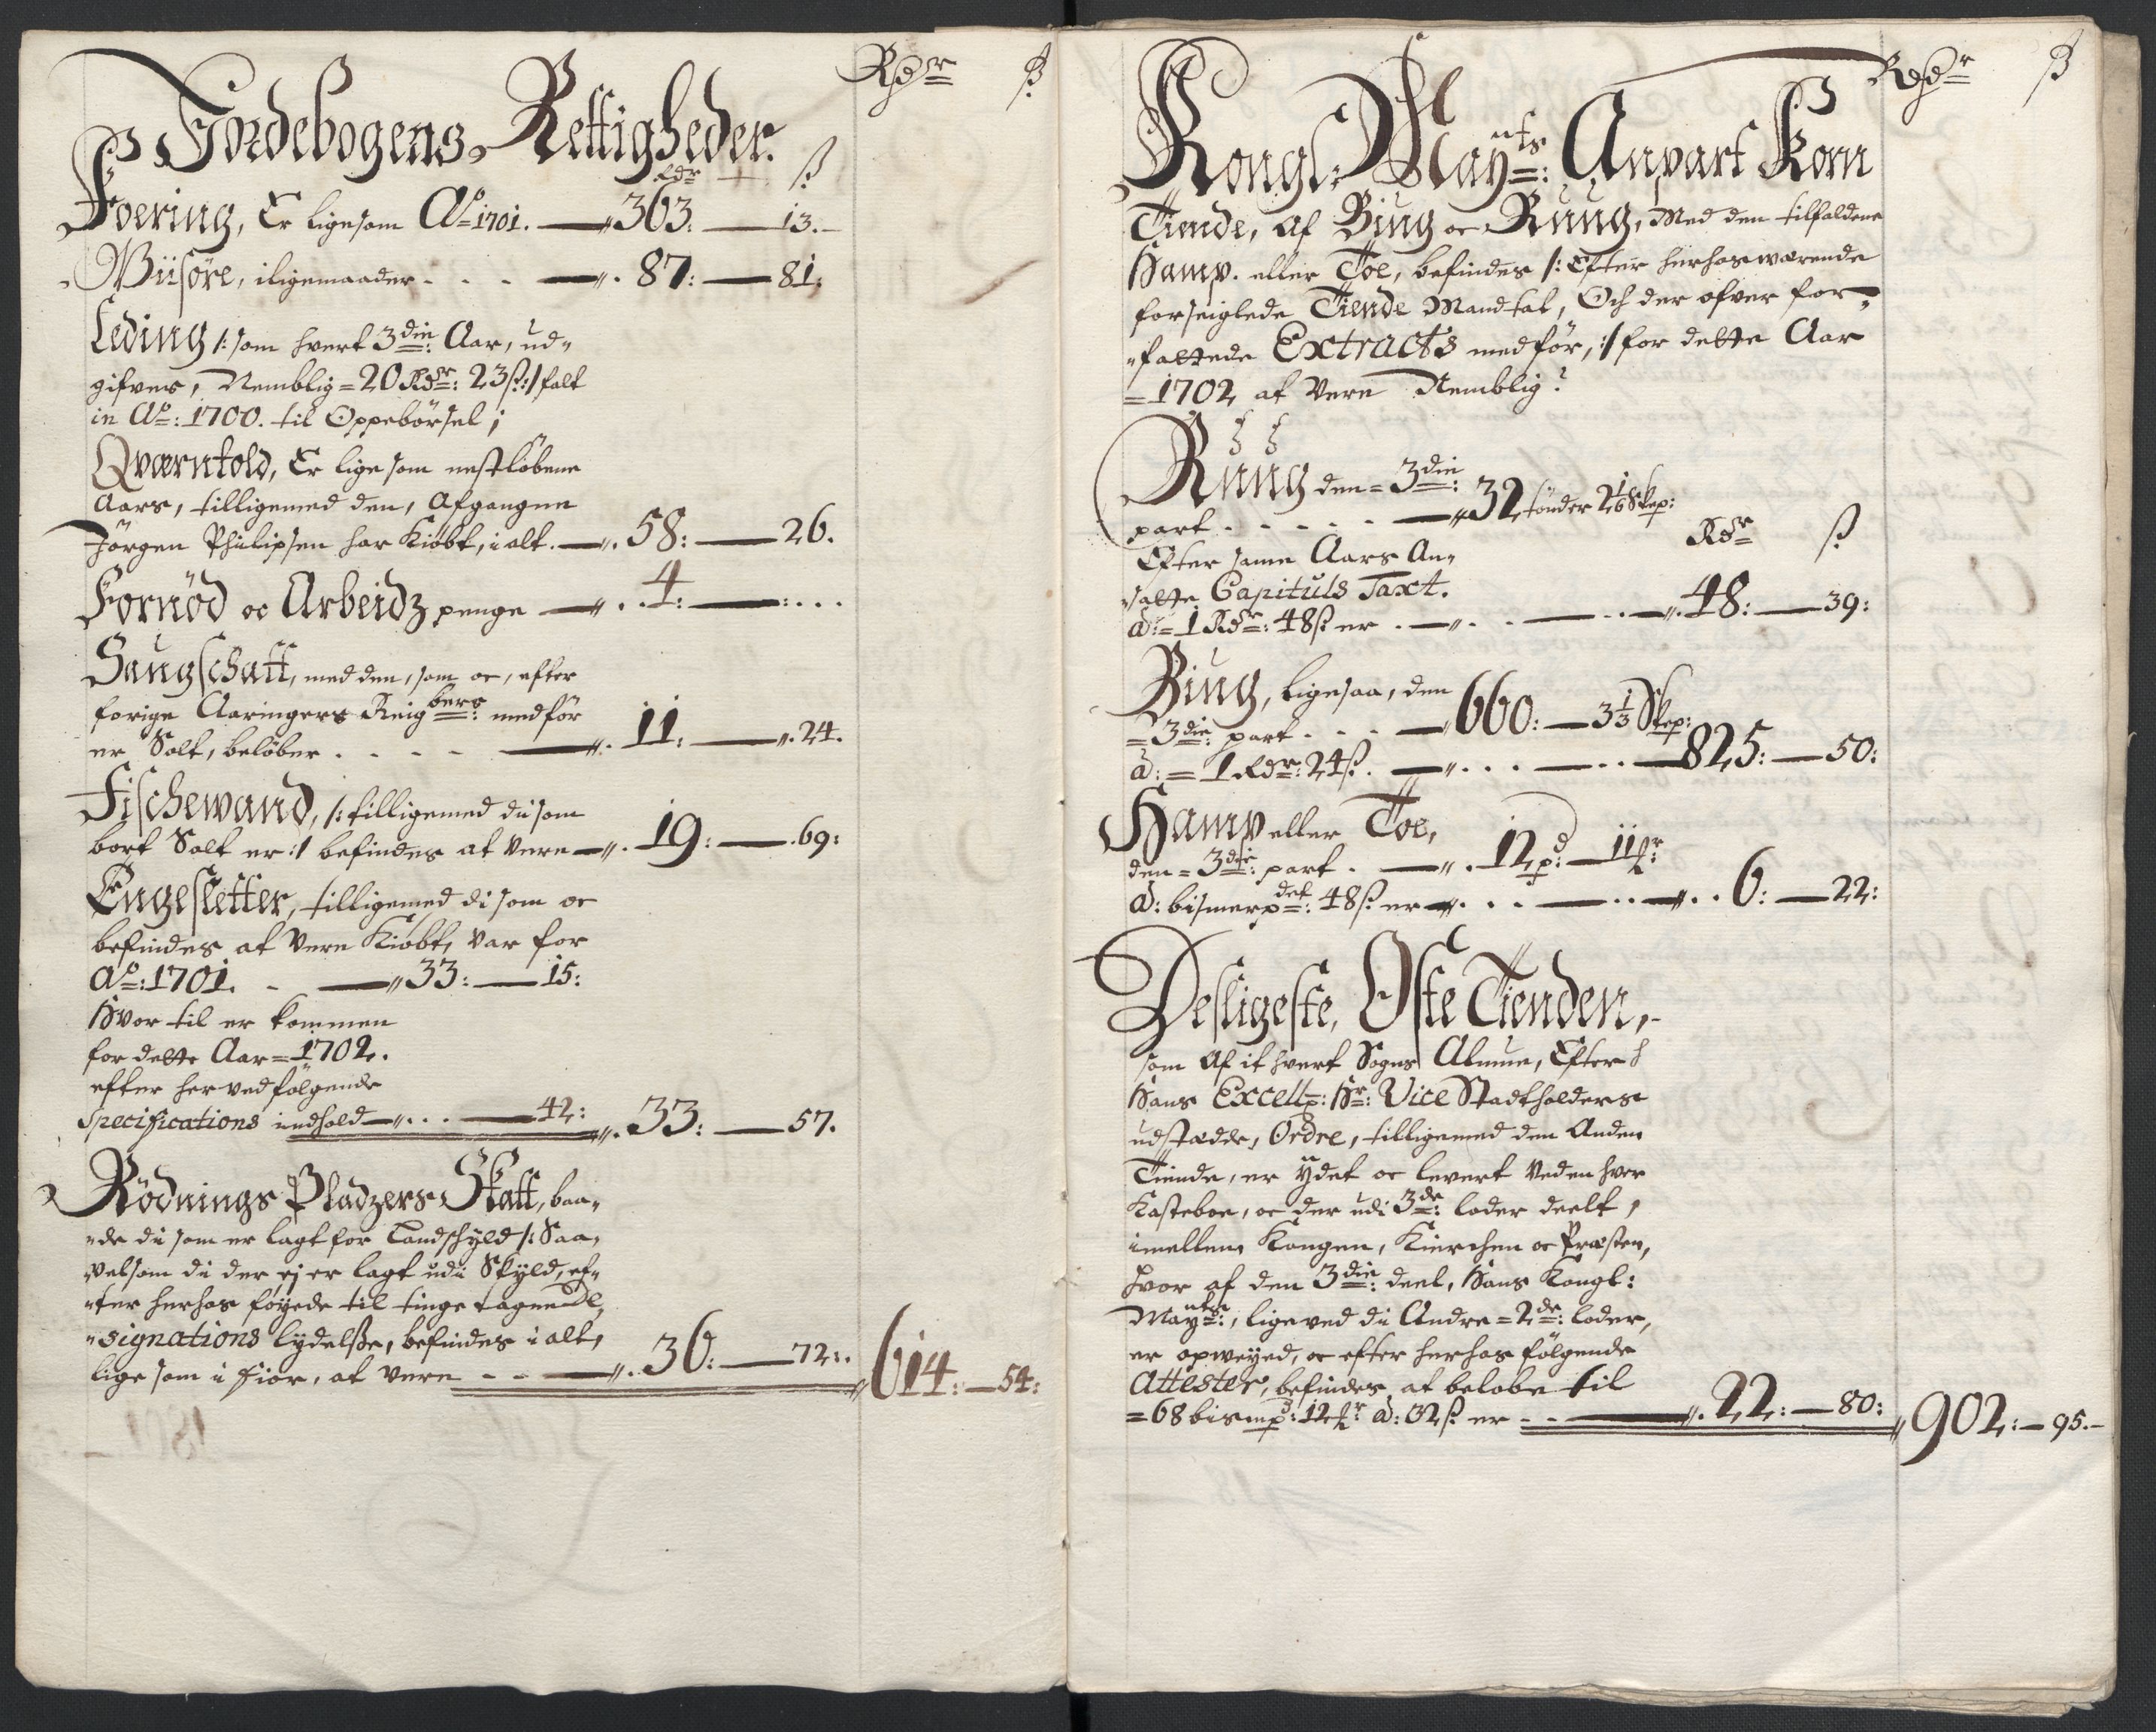 Rdr ß
Jordebogens Rettigheder.
Rdr ß
Foering, Er lige som Ao 1701. — 363. — 13.
Wiisöre, i ligemaader — 87: — 81:
Leding /: som hvert 3die: Aar, ud„
gifves, Nemblig = 20 Rdr: 23 ß :/ falt
in Ao: 1700. til Oppebörsel;
Qværntold, Er lige som nestløbene
Aars, tilligemed den, Afgangne
Jörgen Philipsen har Kiöbt, i alt. — 58: — 26.
Fornöd oc Arbeidz penge — 4: —
Saugschatt, med den, som oc, efter
forige Aaringers medför
er Solt, beløber — 11: — 24.
Fischewand, /: tilligemed di som
bort Solt er :/ befindes at Vere — 19: — 69:
Engesletter, tilligemed di som oc
befindes at Vere Kiöbt, var for
Ao: 1701. — 33: — 15:
Hvor til er kommen
for dette Aar = 1702.
efter her ved følgende
Specifications indhold — 42: — 33: — 57.
Rödnings Pladzers Skatt, baa„
„de di som er lagt for Landschyld /: Saa„
„velsom di der ej er lagt udi Skyld, ef„
„ter herhos föyede til tinge tagne De„
„signations lydelsße, befindes i alt,
lige som i Fior, at Vere — 36: — 72:
614: — 54:
Rdr ß
Kongl: Mayts: Anpart Korn
Tiende, af Biug oc Rüug, Med den tilfaldene
Hamp. eller Toe, befindes /: Efter herhos værende
forseiglede Tiende Mandtal, Och der ofver for„
„fattede Extracts medför, :/ for dette Aar
= 1702 at Vere Nemblig:
Rüug den = 3die:
part — 32 tönder 2 1/6 Skep:
Rdr ß
Efter same Aars An„
„satte Capituls Taxt.
a: = 1 Rdr: 48 ß er — 48: — 39:
Biug, ligesaa, den
= 3die: part — 660: — 3 1/3 Skep:
a: = 1 Rdr: 24 ß. — 825: — 50:
Hamp eller Toe,
den = 3die: part. — 12 pd: — 11 mr:
a: bismerpdet: 48 ß er — 6: — 22:
Desligeste, Oste Tienden,
som Af it hvert Sogns Almue, Efter
Hans Excell: Hr: Vice Stadtholders
udstædde, Ordre, tilligemed den Anden
Tiende, er ÿdet oc levert Veden hver
Kasteboe, oc der udi 3de: loder deelt,
imellem Kongen, Kierchen oc Præsten,
hvor af den 3die: deel, Hans Kongl:
Mayts:, lige ved di Andre = 2de: loder,
er opweyed, oc efter herhos fölgende
Attester, befindes at beløbe til
= 68 bismpd: 12 mr a: 32 ß er — 22: — 80:
902: — 95.